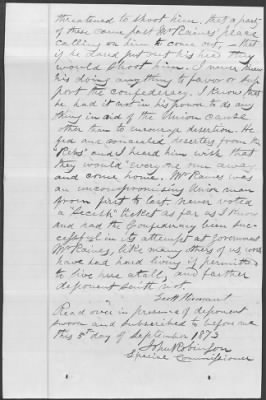 threatened to shoot him, that a part
of these came past Mr Raines' place
calling on him to come out, & that
if he dared put out his head they
would shoot him. I never knew
his doing anything to favor or sup
port the Confederacy. I know that
he had it not in his power to do any
thing in aid of the Union cause
other than to encourage desertion. He
fed and concealed deserters from the
"Rebs" and I heard him wish that
they would "every one run away
and come home. Mr Raines was
an uncompromising Union man
from first to last. never voted
a "Secesh" ticket as far as I know
and had the Confederacy been suc-
cessful in its attempt at government
Mr Raines, & like many others of us would
have had hard living if permitted
to live here at all, and farther
deponent saith not.
Scott
Read over in presence of deponent
sworn and subscribed to before me
this 5th day of September 1873
John Robinson
Special Commissioner